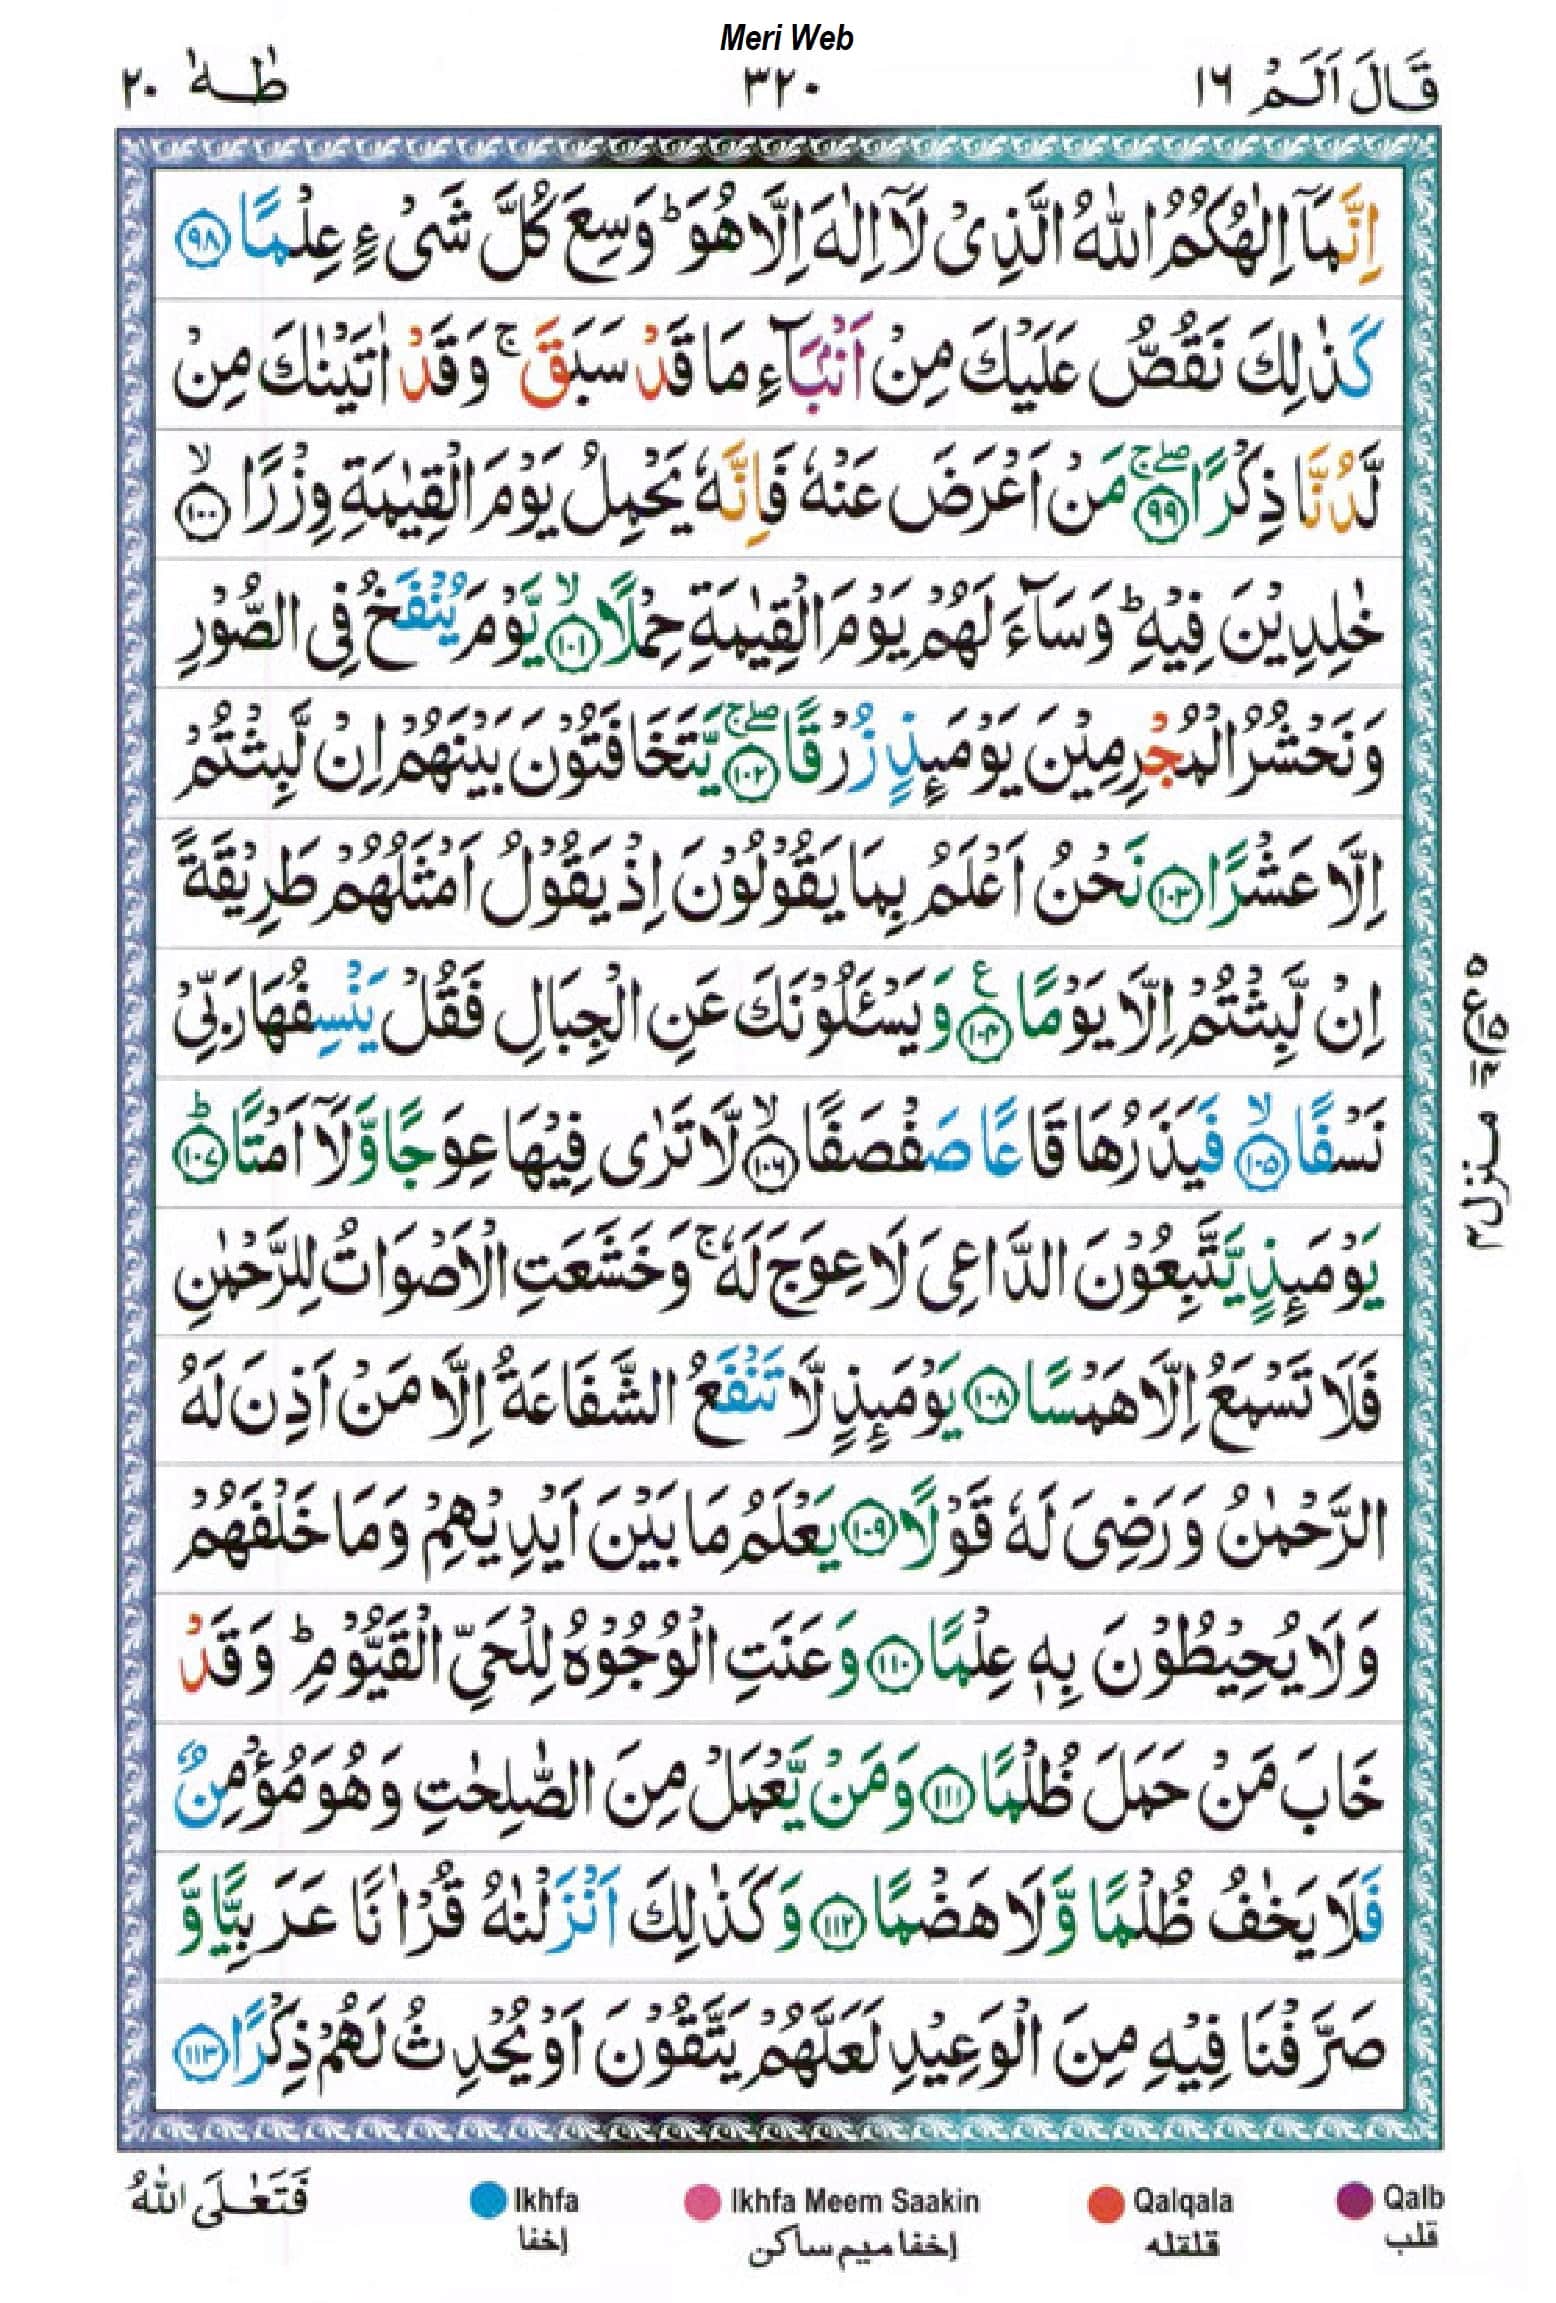 Meri Web
قَالَ اَلَمْ ١٦
٣٢٠
طٰهٰ ٢٠
اِنَّمَاۤ اِلٰهُكُمُ اللّٰهُ الَّذِیْ لَاۤ اِلٰهَ اِلَّا هُوَ ؕ وَسِعَ كُلَّ شَیْءٍ عِلْمًا ٩٨
كَذٰلِكَ نَقُصُّ عَلَیْكَ مِنْ اَنْۢبَآءِ مَا قَدْ سَبَقَ ۚ وَقَدْ اٰتَیْنٰكَ مِنْ
لَّدُنَّا ذِكْرًا ۖۚ ٩٩ مَنْ اَعْرَضَ عَنْهُ فَاِنَّهٗ یَحْمِلُ یَوْمَ الْقِیٰمَةِ وِزْرًا ۙ ١٠٠
خٰلِدِیْنَ فِیْهِ ؕ وَسَآءَ لَهُمْ یَوْمَ الْقِیٰمَةِ حِمْلًا ۙ ١٠١ یَّوْمَ یُنْفَخُ فِی الصُّوْرِ
وَنَحْشُرُ الْمُجْرِمِیْنَ یَوْمَىِٕذٍ زُرْقًا ۖۚ ١٠٢ یَّتَخَافَتُوْنَ بَیْنَهُمْ اِنْ لَّبِثْتُمْ
اِلَّا عَشْرًا ١٠٣ نَحْنُ اَعْلَمُ بِمَا یَقُوْلُوْنَ اِذْ یَقُوْلُ اَمْثَلُهُمْ طَرِیْقَةً
اِنْ لَّبِثْتُمْ اِلَّا یَوْمًا ١٠٤ ع وَیَسْـَٔلُوْنَكَ عَنِ الْجِبَالِ فَقُلْ یَنْسِفُهَا رَبِّیْ
نَسْفًا ۙ ١٠٥ فَیَذَرُهَا قَاعًا صَفْصَفًا ۙ ١٠٦ لَّا تَرٰی فِیْهَا عِوَجًا وَّلَاۤ اَمْتًا ؕ ١٠٧
یَوْمَىِٕذٍ یَّتَّبِعُوْنَ الدَّاعِیَ لَا عِوَجَ لَهٗ ۚ وَخَشَعَتِ الْاَصْوَاتُ لِلرَّحْمٰنِ
فَلَا تَسْمَعُ اِلَّا هَمْسًا ١٠٨ یَوْمَىِٕذٍ لَّا تَنْفَعُ الشَّفَاعَةُ اِلَّا مَنْ اَذِنَ لَهُ
الرَّحْمٰنُ وَرَضِیَ لَهٗ قَوْلًا ١٠٩ یَعْلَمُ مَا بَیْنَ اَیْدِیْهِمْ وَمَا خَلْفَهُمْ
وَلَا یُحِیْطُوْنَ بِهٖ عِلْمًا ١١٠ وَعَنَتِ الْوُجُوْهُ لِلْحَیِّ الْقَیُّوْمِ ؕ وَقَدْ
خَابَ مَنْ حَمَلَ ظُلْمًا ١١١ وَمَنْ یَّعْمَلْ مِنَ الصّٰلِحٰتِ وَهُوَ مُؤْمِنٌ
فَلَا یَخٰفُ ظُلْمًا وَّلَا هَضْمًا ١١٢ وَكَذٰلِكَ اَنْزَلْنٰهُ قُرْاٰنًا عَرَبِیًّا وَّ
صَرَّفْنَا فِیْهِ مِنَ الْوَعِیْدِ لَعَلَّهُمْ یَتَّقُوْنَ اَوْ یُحْدِثُ لَهُمْ ذِكْرًا ١١٣
منزل ٤
فَتَعٰلَی اللّٰهُ
Ikhfa
إخفا
Ikhfa Meem Saakin
إخفا ميم ساكن
Qalqala
قلقله
Qalb
قلب